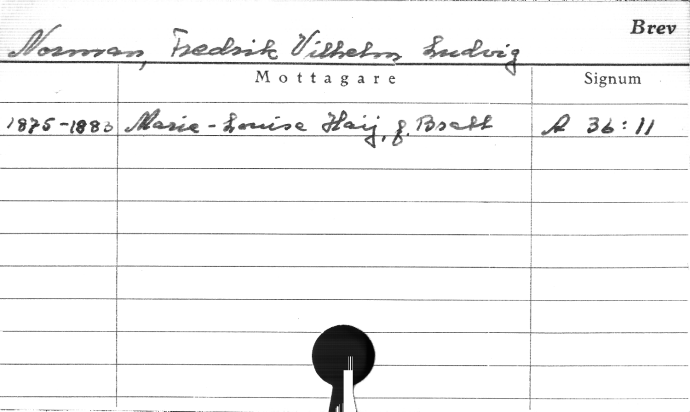 Brev
Norman, Fredrik Vilhelm Ludvig
Mottagare Signum
1875-1883 Marie-Louise Haij, f. Bratt A 36:11